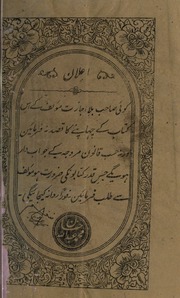 اعلان
کوئی صاحب بلا اجازت مؤلف کے اس
کتاب کے چھاپنے کا قصد نہ فرمائین
ورنہ حسب قانون مروجہ کے جوابدہ
ہونگے جس قدر کتابونکی ضرورت ہو مؤلف
سے طلب فرمائین فوراً روانہ کیجائیگی